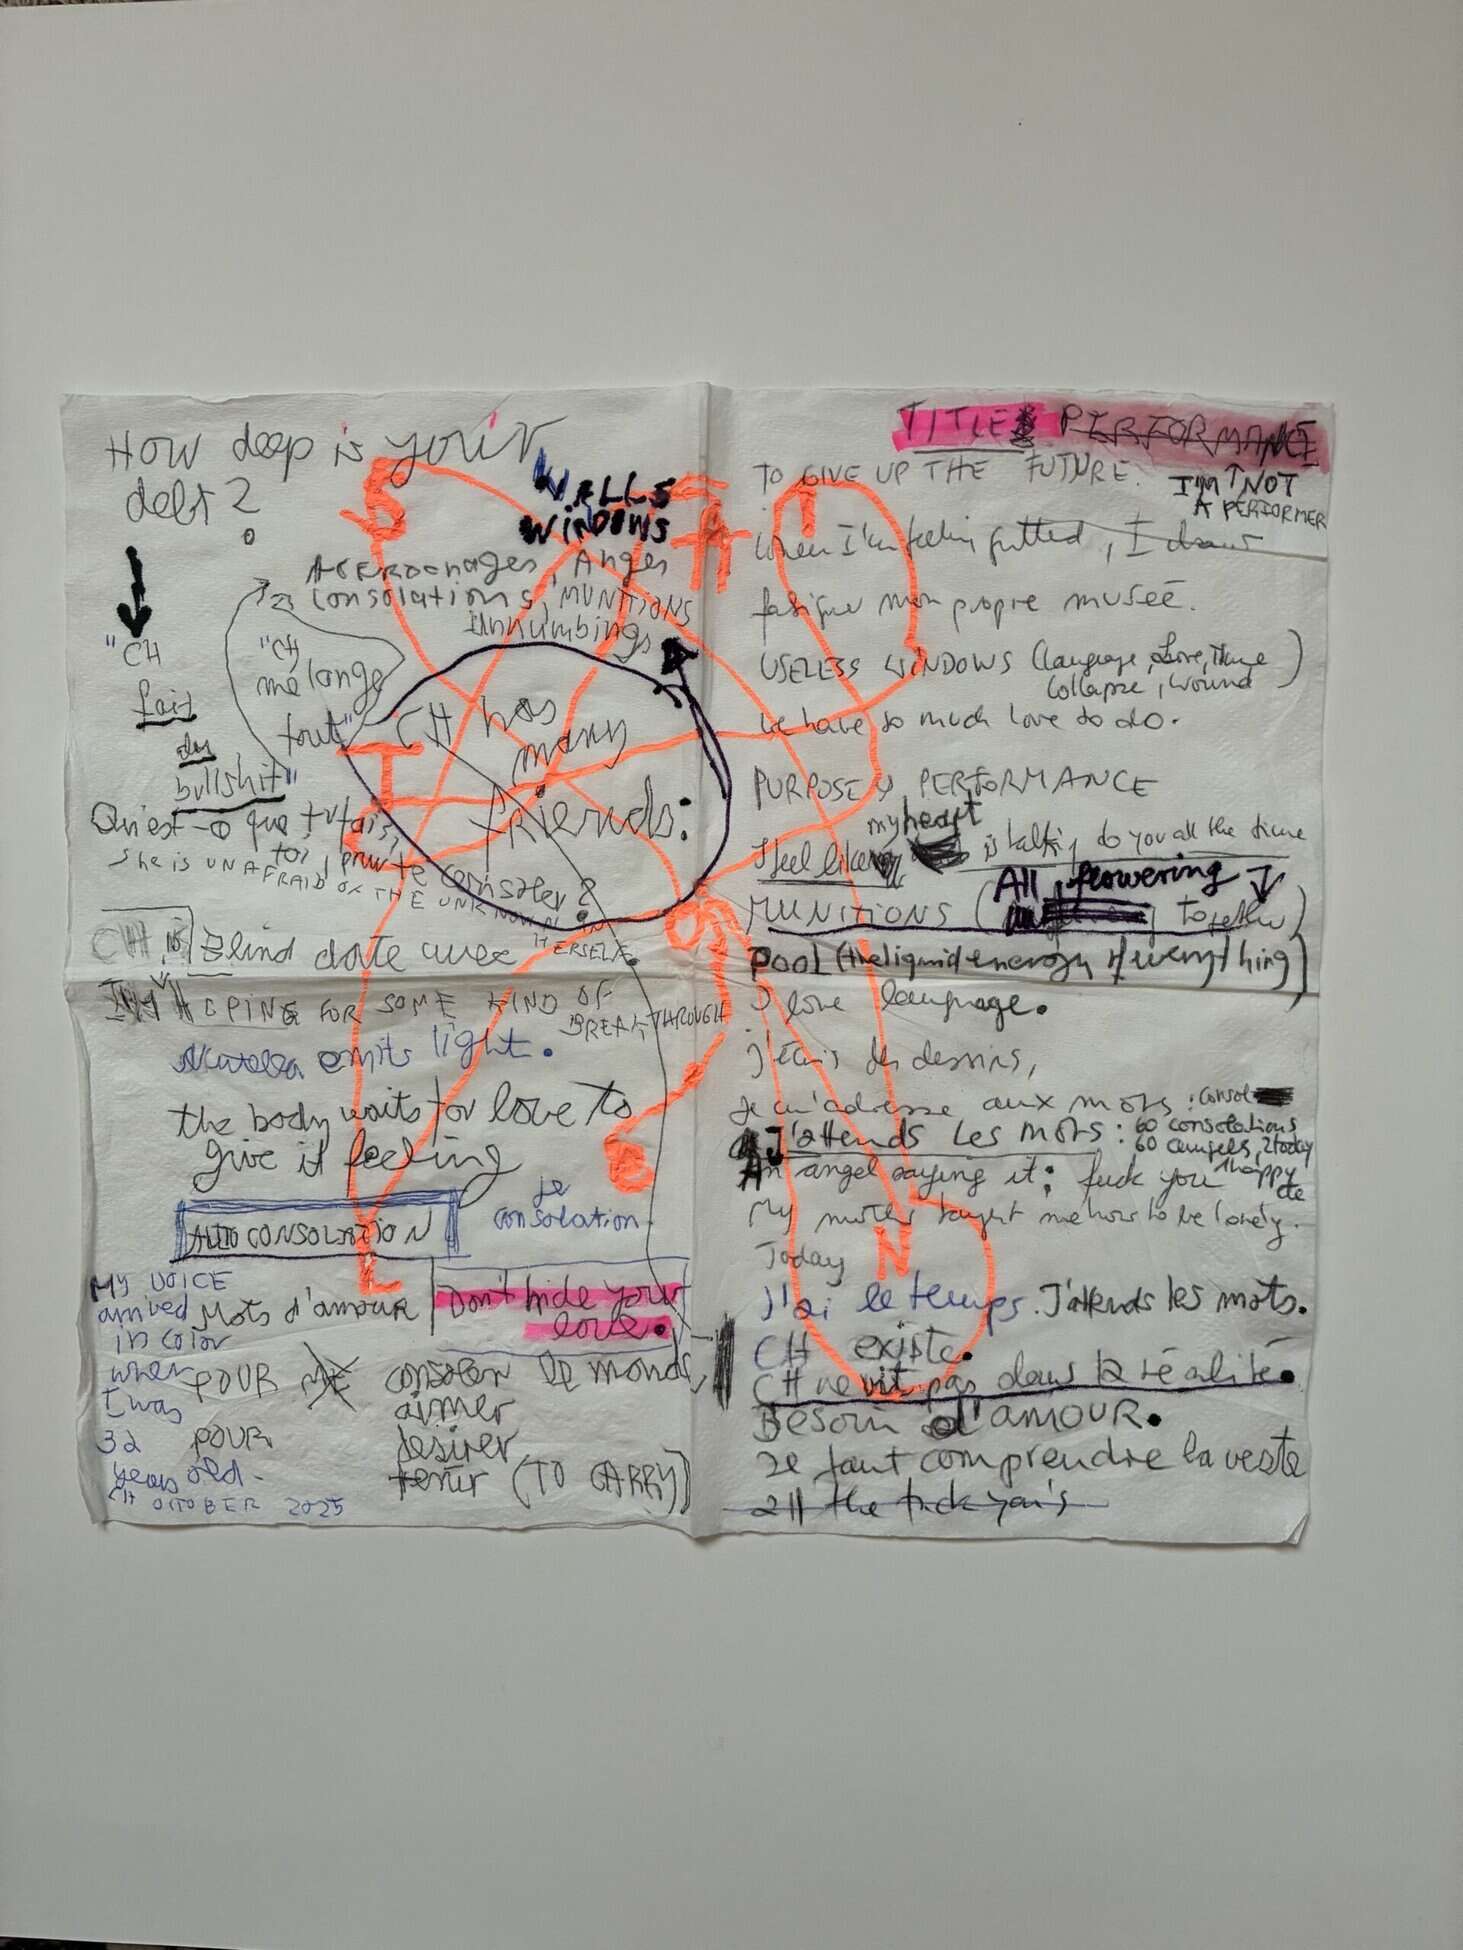 How deep is your
debt?
WELLS
WINDOWS
Anges
consolations, MUNITIONS
Unnumbings
"CH
fait
du
bullshit"
"CH
mélange
tout"
CH has
many
friends:
Qu'est-ce que tu fais,
toi, pour te consoler?
She is UNAFRAID OF THE UNKNOWN IN
HERSELF.
CH is Blind date avec
HOPING FOR SOME KIND OF
BREAKTHROUGH
emits light.
the body waits for love to
give it feeling
je
consolation
AUTO CONSOLATION
MY VOICE
arrived
in color
when
I was
32
years old.
CH OCTOBER 2025
Mots d'amour
Don't hide your
love.
POUR ME
POUR
consoler le monde,
aimer
désirer
tenir (TO CARRY)
TITLES PERFORMANCE
I'M NOT
A PERFORMER
TO GIVE UP THE FUTURE.
When I'm feeling gutted, I draw
fatiguer mon propre musée.
USELESS WINDOWS (language, Love, Time
collapse, wound)
We have so much love to do.
PURPOSE PERFORMANCE
I feel like my heart is talking do you all the time
MUNITIONS (All flowering together)
POOL (the liquid energy of everything)
I love language.
j'écris des dessins,
Je m'adresse aux mots: consol
J'attends les mots: 60 consolations
60 angels, 2today
An angel saying it: fuck you
My mother taught me how to be lonely.
Today
J'ai le temps. J'attends les mots.
CH existe.
CH ne vit pas dans la réalité.
Besoin d'AMOUR.
Il faut comprendre la veste
all the fuck you's
S
A
T
I
O
N
L